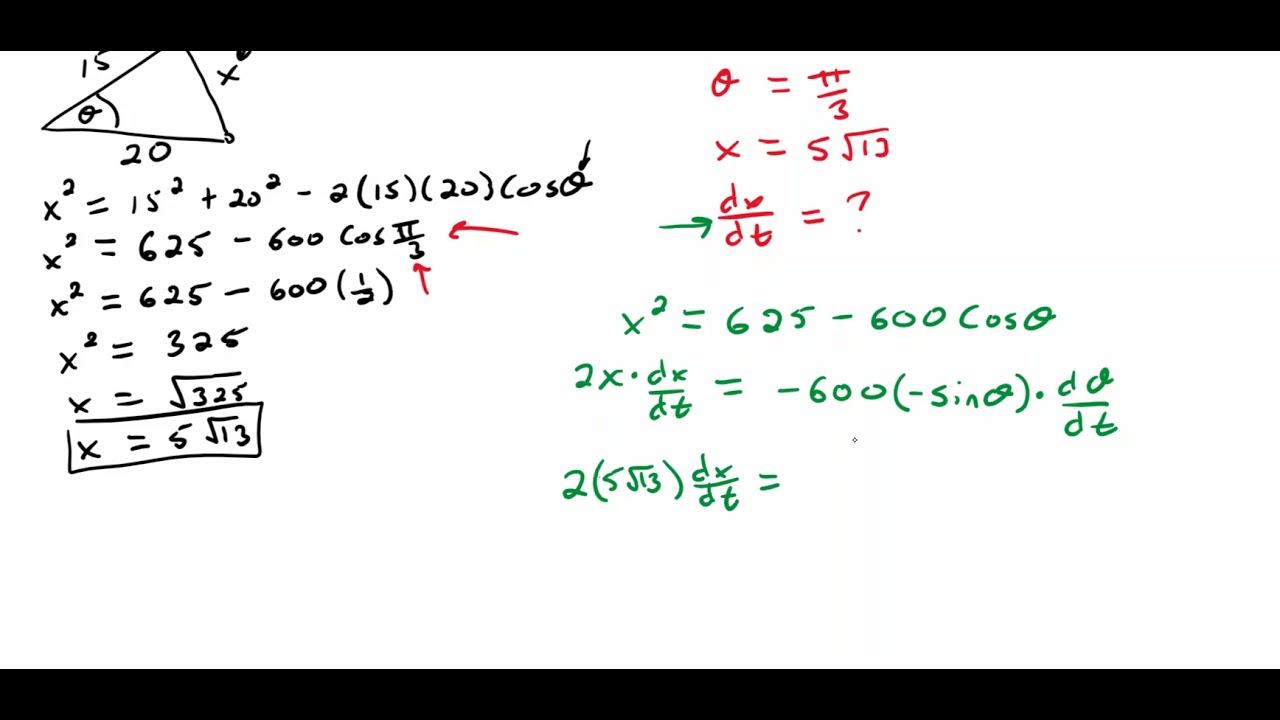 15
x
θ
20
x² = 15² + 20² - 2(15)(20)cosθ
x² = 625 - 600 cos π/3
x² = 625 - 600(1/2)
x² = 325
x = √325
x = 5√13
θ = π/3
x = 5√13
dx/dt = ?
x² = 625 - 600 cosθ
2x · dx/dt = -600(-sinθ) · dθ/dt
2(5√13) dx/dt =